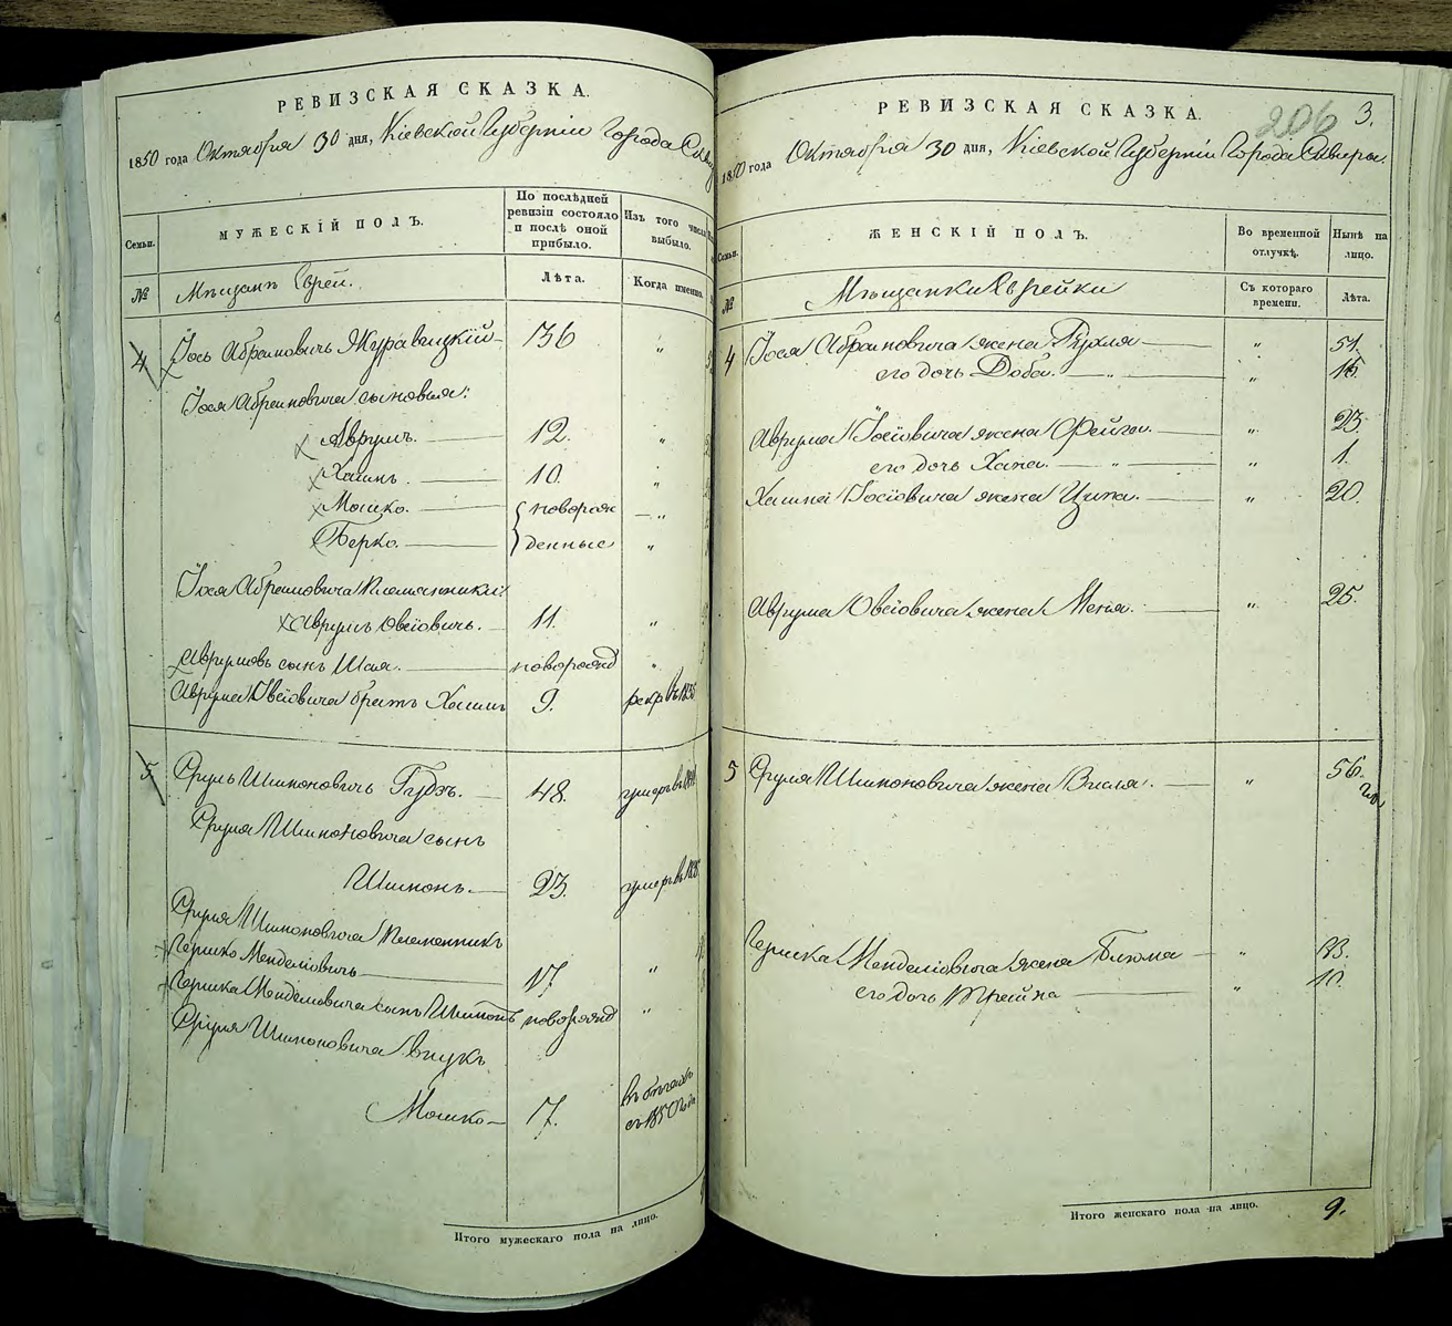 РЕВИЗСКАЯ СКАЗКА.
1850 года Октября 30 дня, Кіевской Губерніи Города
По послѣдней ревизіи состояло и послѣ оной прибыло.
Изъ того числа выбыло.
Семьи.
МУЖЕСКІЙ ПОЛЪ.
№
Мѣщанъ Еврей.
Лѣта.
Когда именно.
4 Іось Абрамовичъ Журавицкій 36 "
Іося Абрамовича сыновья:
Аврумъ. 12. "
Хаимъ. 10. "
Мошко. новорож "
Берко. денные "
Іося Абрамовича племянники:
Аврумъ Овсіовичъ. 11. "
Аврумовъ сынъ Шая. новорожд "
Аврума Овсіовича братъ Хаимъ 9. рекр въ 1835
5 Сруль Шимоновичъ Гудзъ. 48. умеръ въ
Сруля Шимоновича сынъ
Шимонъ. 23. умеръ въ
Сруля Шимоновича племенникъ
Гершко Менделіовичъ 17 "
Гершка Менделіовича сынъ Шимонъ новорожд "
Сруля Шимоновича внукъ
Мошко 17. въ бѣгахъ
съ 1850 года
Итого мужескаго пола на лицо.
РЕВИЗСКАЯ СКАЗКА.
206 3.
1850 года Октября 30 дня, Кіевской Губерніи Города Сквиры.
Семьи.
ЖЕНСКІЙ ПОЛЪ.
Во временной отлучкѣ.
Нынѣ на лицо.
№
Мѣщанки Еврейки
Съ котораго времени.
Лѣта.
4 Іося Абрамовича жена Рухля " 51.
его дочь Доба. " " 16.
Аврума Іосіовича жена Фейга. " 23.
его дочь Хана. " " 1.
Хаима Іосіовича жена Ципа. " 20.
Аврума Овсіовича жена Меня. " 25.
5 Сруля Шимоновича жена " 56.
Гершка Менделіовича жена Блюма " 33.
его дочь Трейна " 10.
Итого женскаго пола на лицо. 9.